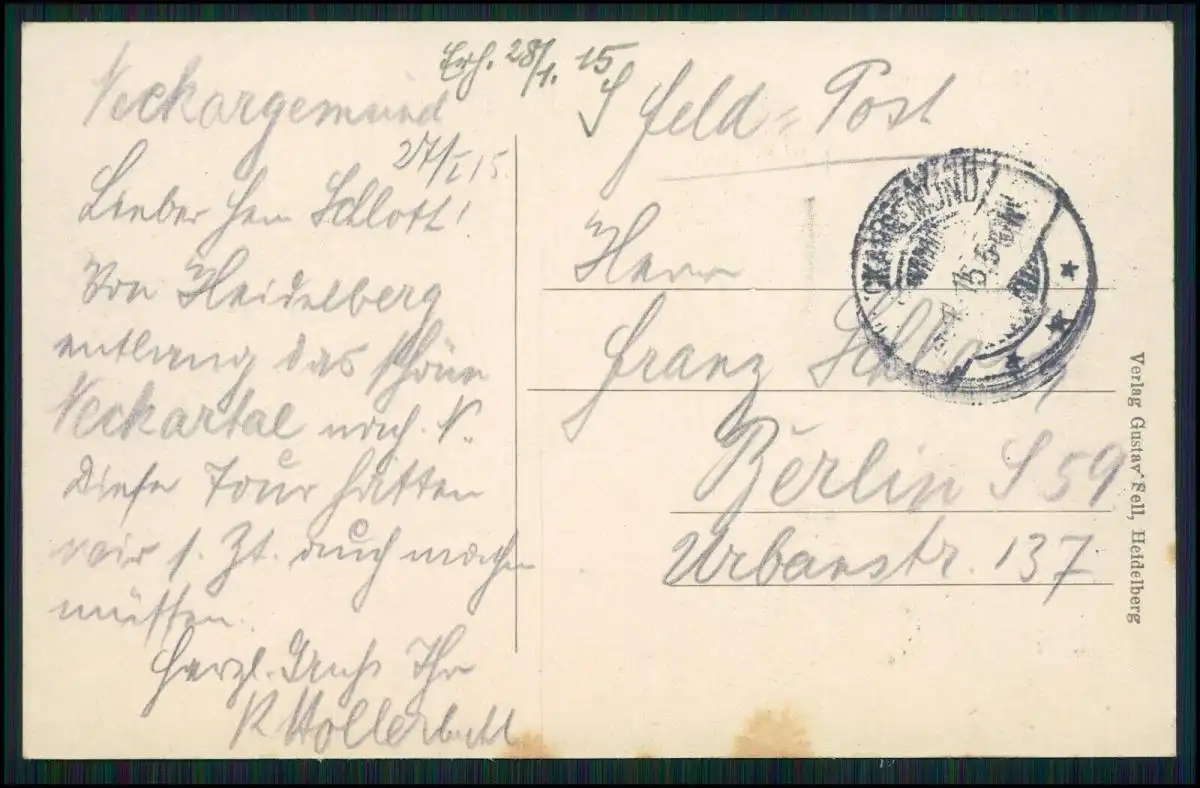 Erh. 28/1. 15
Neckargemünd
27/I 15.
Lieber Herr Schlott!
Von Heidelberg
entlang das schöne
Neckartal nach N.
Diese Tour hätten
wir s. Zt. auch machen
müssen.
Herzl. Gruß Ihr
Feld-Post
Herrn
Franz
Berlin S 59
Urbanstr. 137
Verlag Gustav Fell, Heidelberg